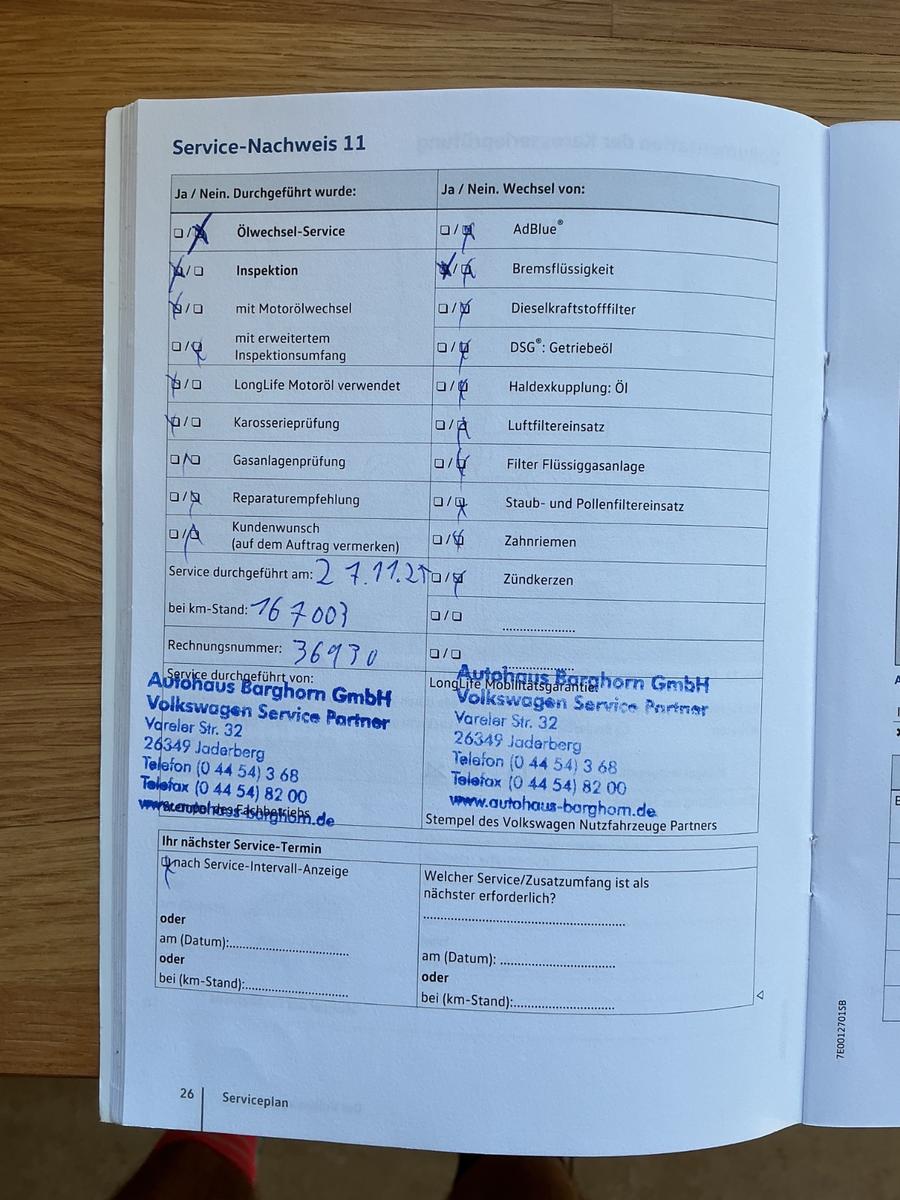 Service-Nachweis 11
Ja / Nein. Durchgeführt wurde:
Ölwechsel-Service
Inspektion
mit Motorölwechsel
mit erweitertem
Inspektionsumfang
LongLife Motoröl verwendet
Karosserieprüfung
Gasanlagenprüfung
Reparaturempfehlung
Kundenwunsch
(auf dem Auftrag vermerken)
Service durchgeführt am: 27.11.21
bei km-Stand: 167003
Rechnungsnummer: 36930
Service durchgeführt von:
Autohaus Barghorn GmbH
Volkswagen Service Partner
Vareler Str. 32
26349 Jaderberg
Telefon (0 44 54) 3 68
Telefax (0 44 54) 82 00
www.autohaus-barghorn.de
Ja / Nein. Wechsel von:
AdBlue®
Bremsflüssigkeit
Dieselkraftstofffilter
DSG®: Getriebeöl
Haldexkupplung: Öl
Luftfiltereinsatz
Filter Flüssiggasanlage
Staub- und Pollenfiltereinsatz
Zahnriemen
Zündkerzen
LongLife Mobilitätsgarantie
Autohaus Barghorn GmbH
Volkswagen Service Partner
Vareler Str. 32
26349 Jaderberg
Telefon (0 44 54) 3 68
Telefax (0 44 54) 82 00
www.autohaus-barghorn.de
Stempel des Volkswagen Nutzfahrzeuge Partners
Ihr nächster Service-Termin
nach Service-Intervall-Anzeige
oder
am (Datum):
oder
bei (km-Stand):
Welcher Service/Zusatzumfang ist als
nächster erforderlich?
am (Datum):
oder
bei (km-Stand):
7E0012701SB
26
Serviceplan